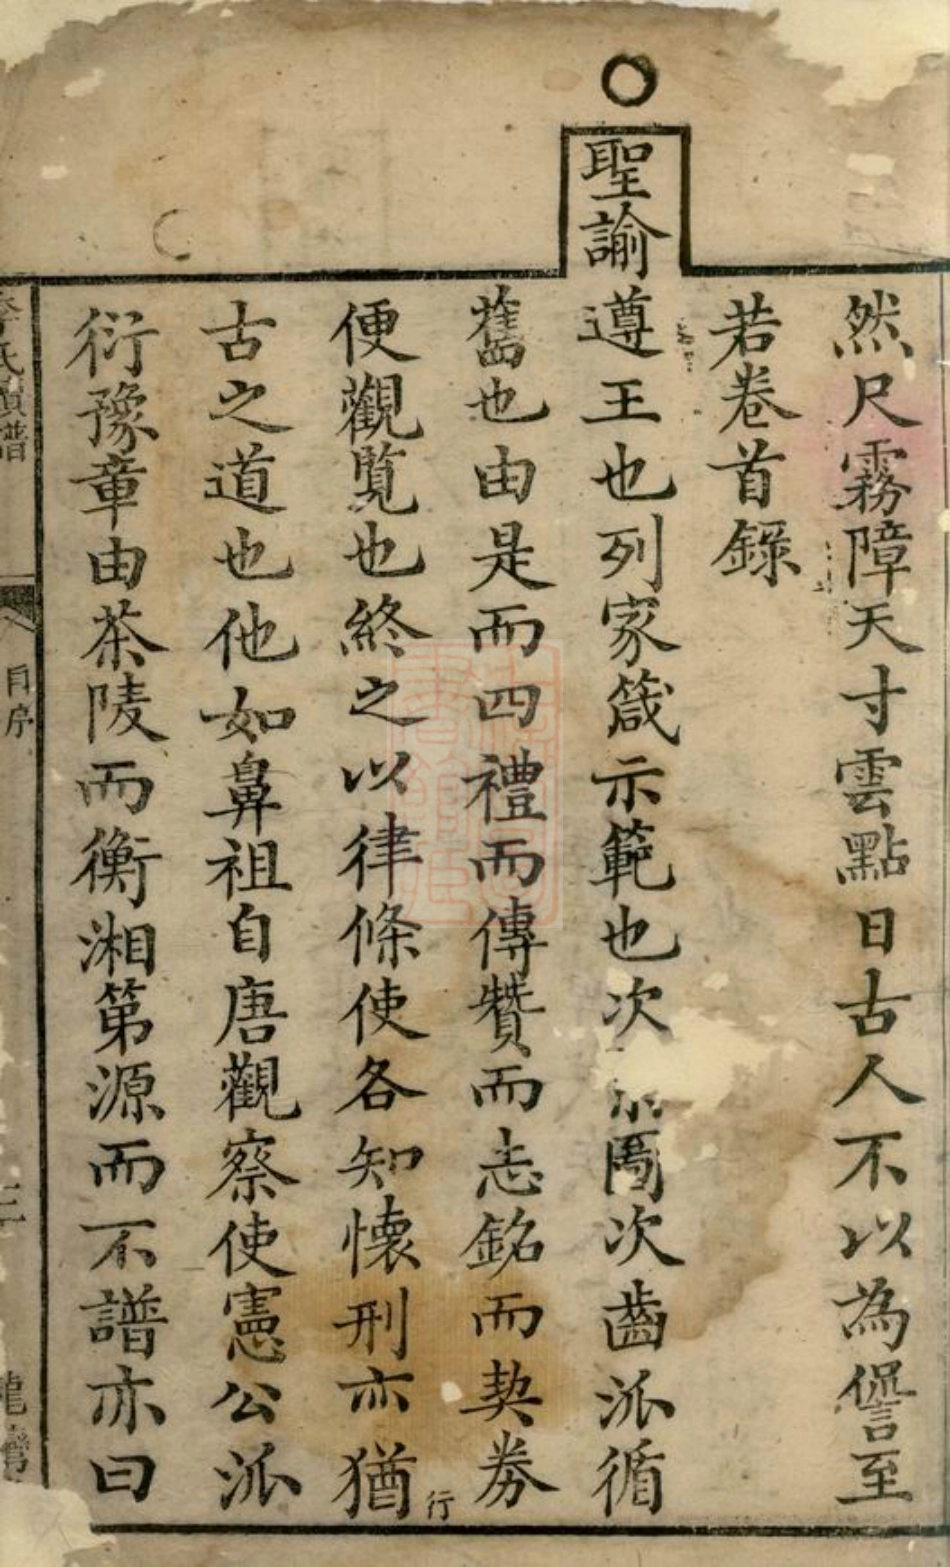 然尺霧障天寸雲點日古人不以為諐至
若卷首錄
聖諭遵王也列家箴示範也次圖次齒派循
舊也由是而四禮而傳贊而志銘而契券
便觀覽也終之以律條使各知懷刑亦猶行
古之道也他如鼻祖自唐觀察使憲公派
衍豫章由茶陵而衡湘第源而不譜亦曰
李氏源譜
自序
三